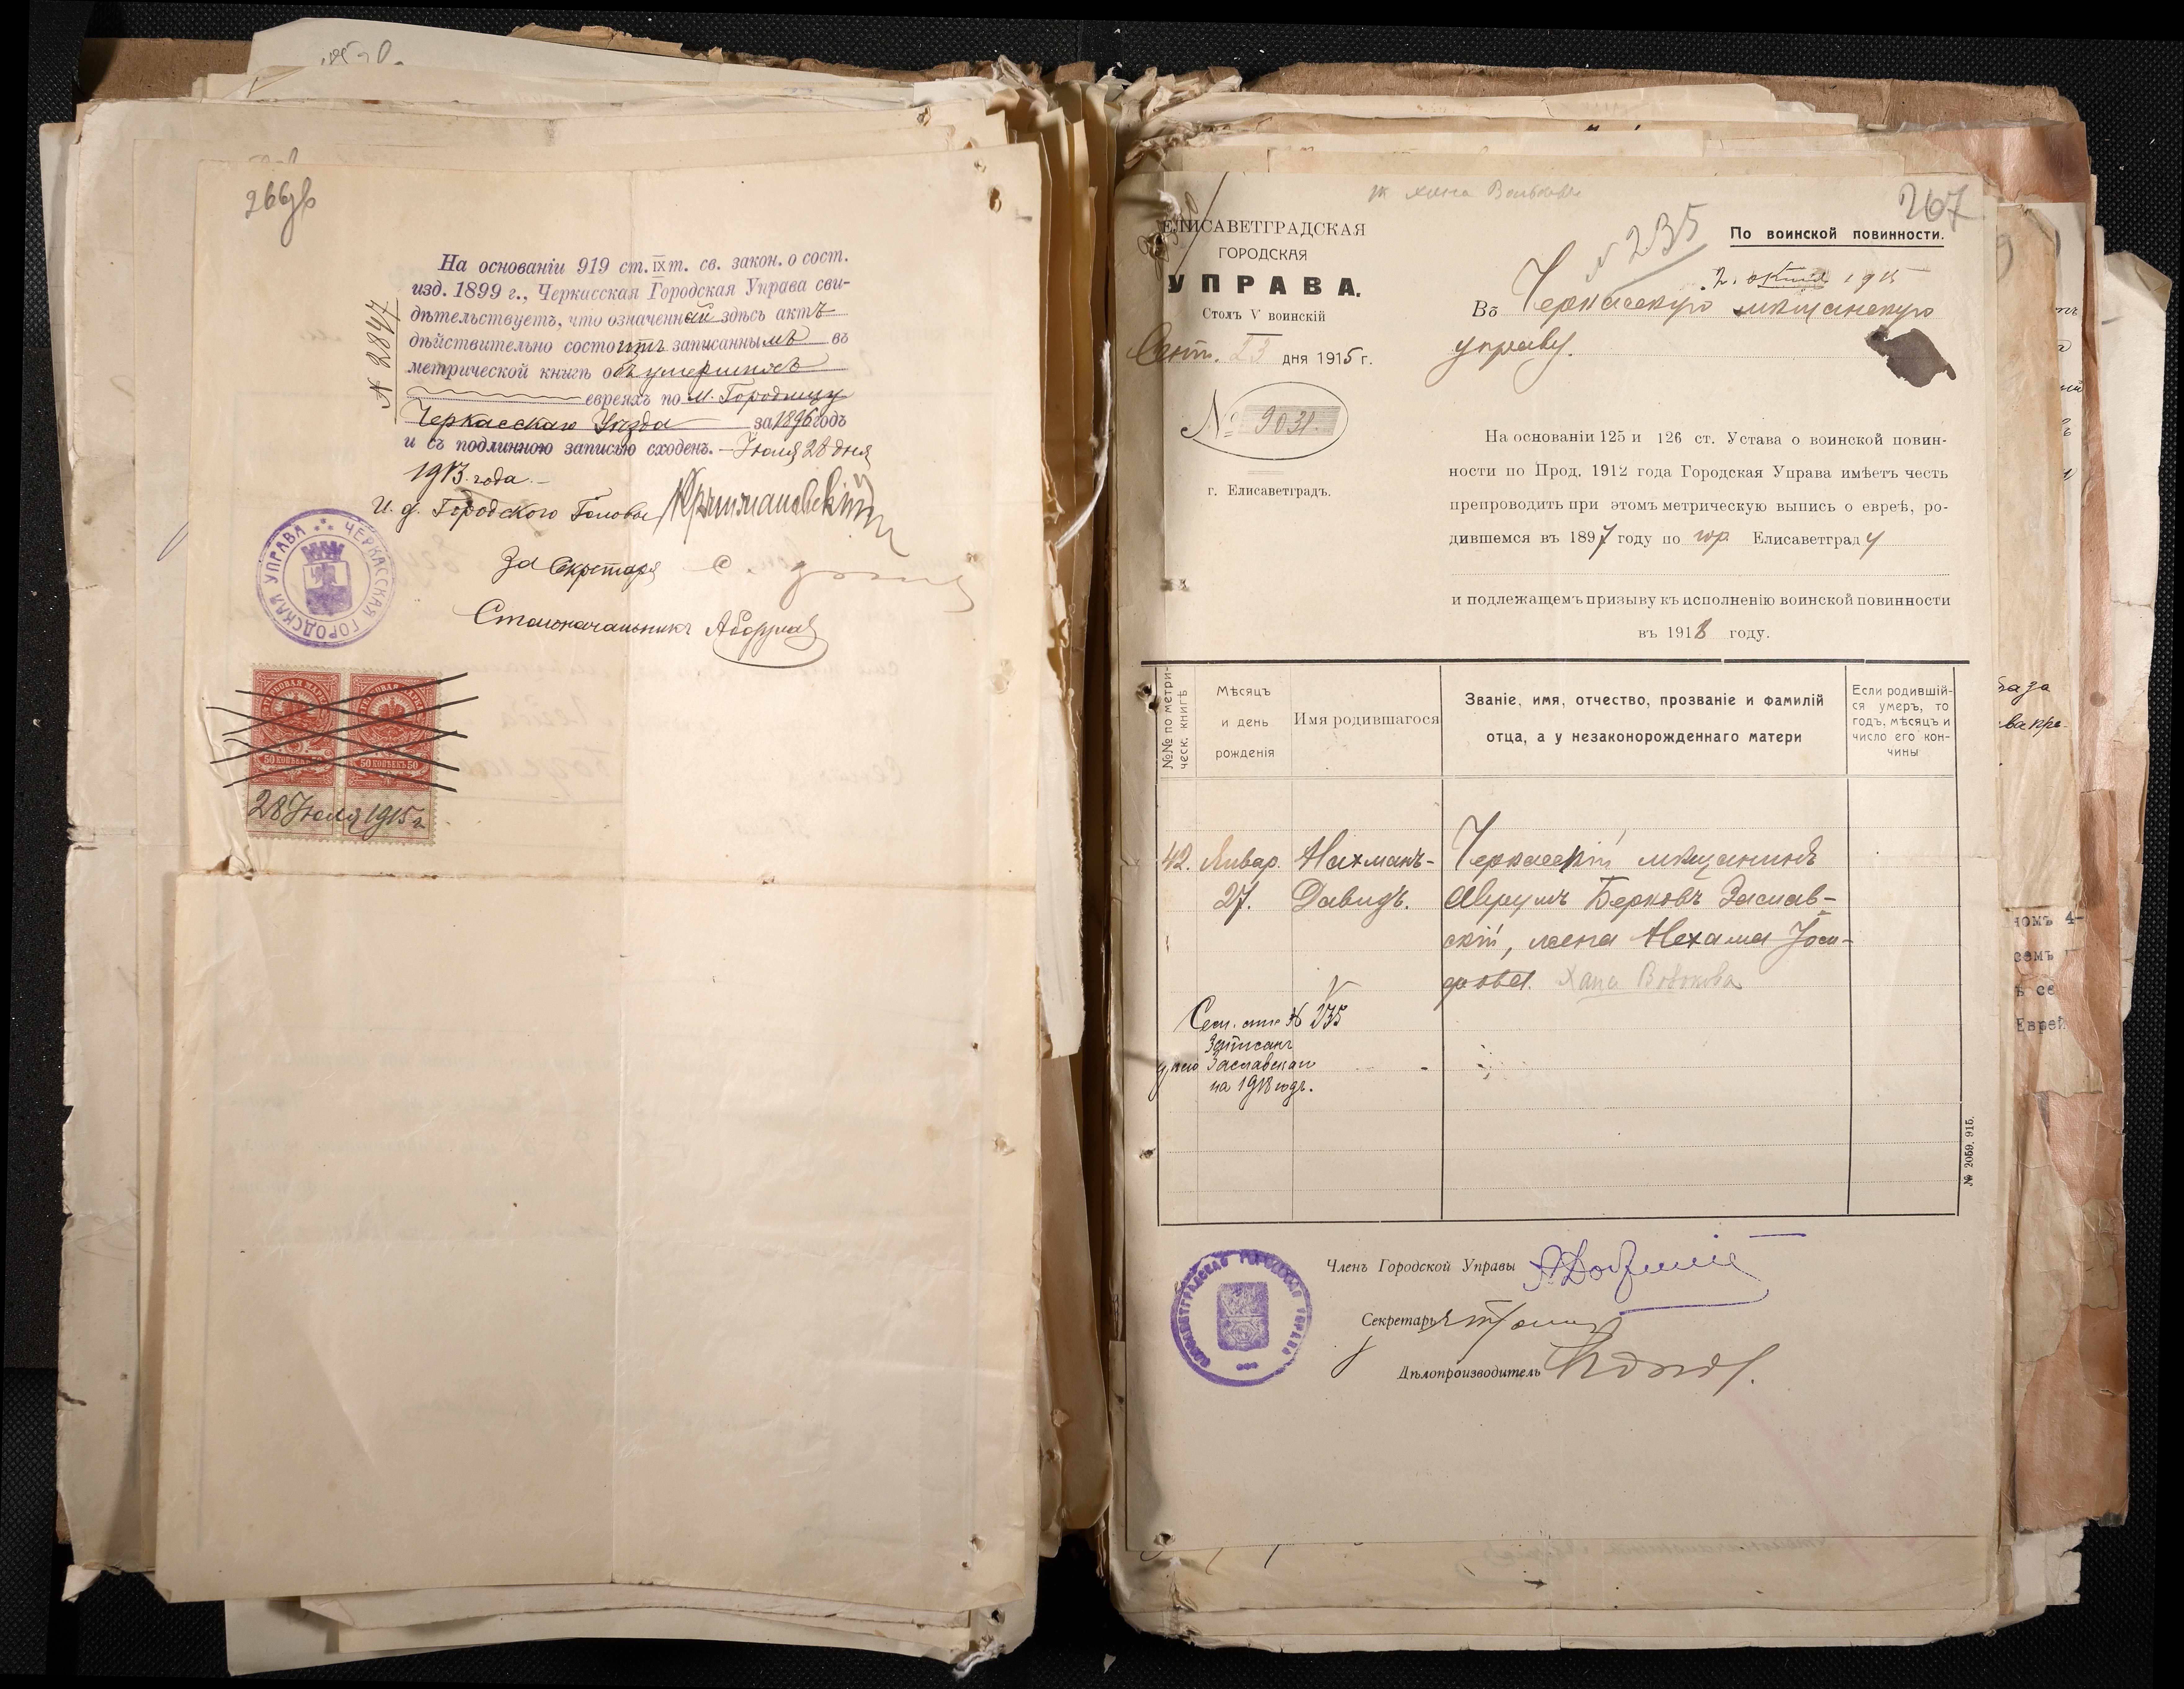 266об
На основаніи 919 ст. IX т. св. закон. о сост.
изд. 1899 г., Черкасская Городская Управа сви-
дѣтельствуетъ, что означенный здѣсь актъ
дѣйствительно состоитъ записаннымъ въ
метрической книгѣ объ умершихъ
евреяхъ по м. Городищу
Черкасскаго Уѣзда за 1896 годъ
и съ подлинною записью сходенъ. – Іюля 28 дня
1915 года. –
№ 2847
И. д. Городского Головы
За Секретаря
Столоначальникъ
ЧЕРКАССКАЯ ГОРОДСКАЯ УПРАВА
50 КОПѢЕКЪ 50
50 КОПѢЕКЪ 50
28 Іюля 1915 г.
267
ЕЛИСАВЕТГРАДСКАЯ
ГОРОДСКАЯ
УПРАВА.
Столъ V воинскій
Сент. 23 дня 1915 г.
№ 9031.
г. Елисаветградъ.
№ 235
По воинской повинности.
2 1915
Въ Черкасскую мѣщанскую
управу.
На основаніи 125 и 126 ст. Устава о воинской повин-
ности по Прод. 1912 года Городская Управа имѣетъ честь
препроводить при этомъ метрическую выпись о евреѣ, ро-
дившемся въ 1897 году по гор. Елисаветграду
и подлежащемъ призыву къ исполненію воинской повинности
въ 1918 году.
№№ по метри-
ческ. книгѣ
Мѣсяцъ
и день
рожденія
Имя родившагося
Званіе, имя, отчество, прозваніе и фамилій
отца, а у незаконорожденнаго матери
Если родившій-
ся умеръ, то
годъ, мѣсяцъ и
число его кон-
чины
42. Январ. Нахманъ- Черкасскій мѣщанинъ
27. Давидъ. Аврумъ Берковъ Заслав-
скій, жена Нехама Іоси-
фова. Хана Вовкова
Сем. № 235
Записанъ
Заславскаго
на 1918 годъ.
№ 2059. 915.
Членъ Городской Управы
Секретарь
Дѣлопроизводитель
ЕЛИСАВЕТГРАДСКАЯ ГОРОДСКАЯ УПРАВА